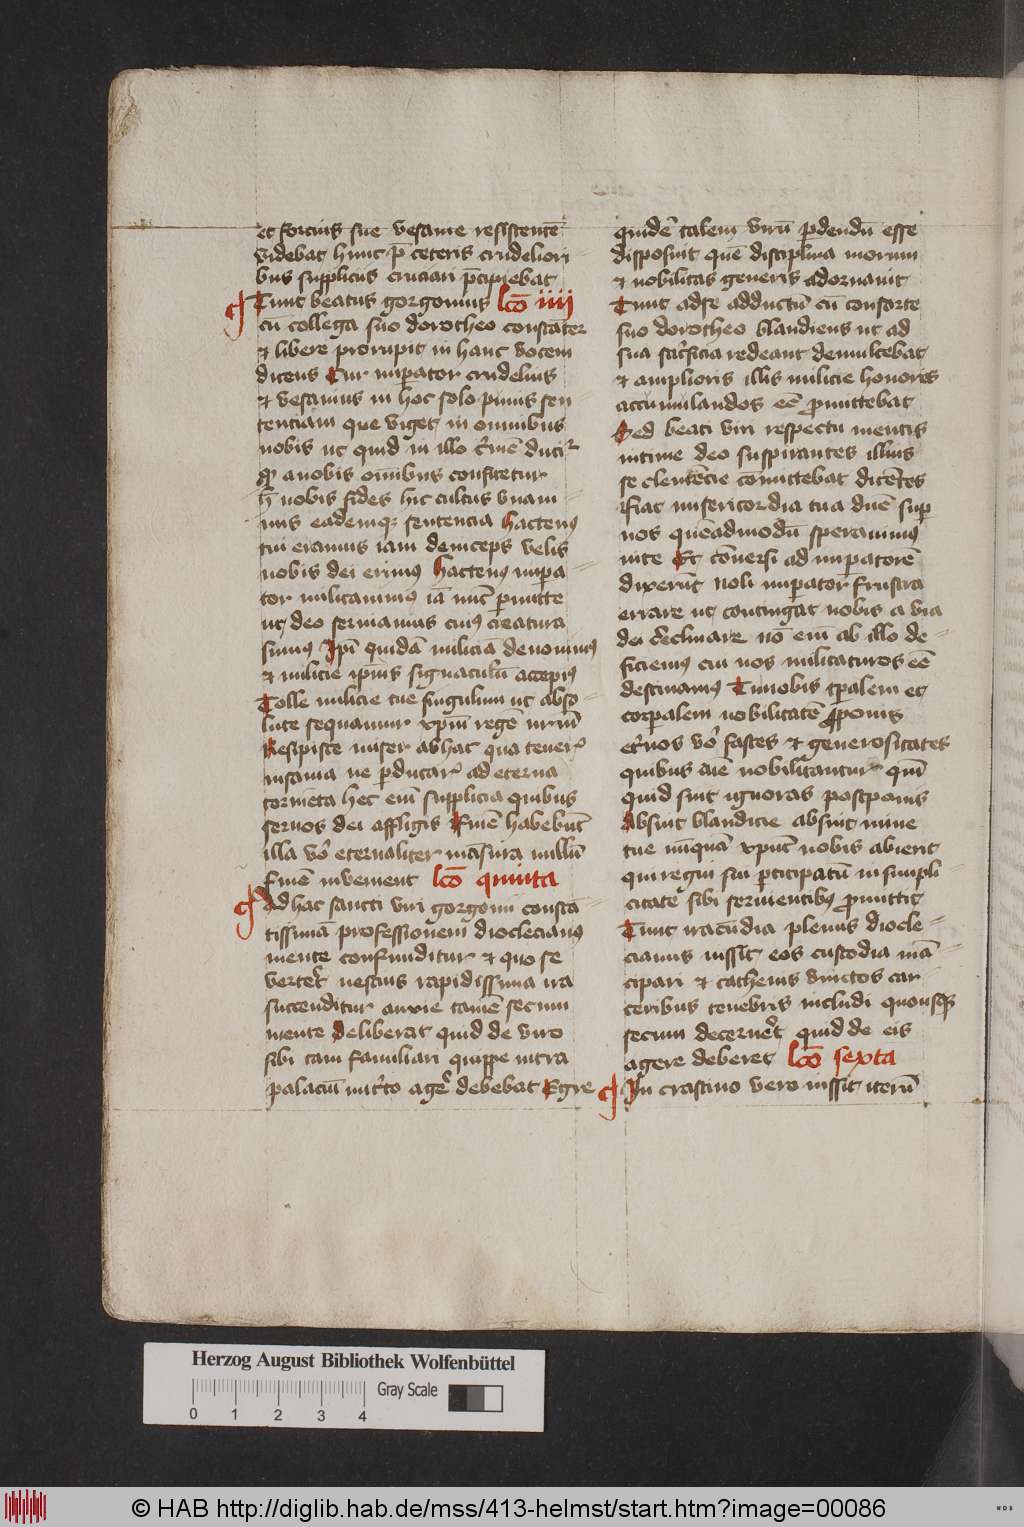 et forcius sue vesanie resistentē
videbat hunc p̄ ceteris crudeliori
bus suppliciis cruciari p̄cipiebat
Tunc beatus gorgonius lcō iiii
cū collega suo dorotheo constāter
et libere prorupit in hanc vocem
dicens Cur imperator crudelius
et vesanius in hoc solo punis sen
tenciam que viget in omnibus
nobis ut quid in illo c̄mē
a nobis omībus confitetur
h̄ nobis fides hic cultus unani
mis eademqꝫ sentencia hactenꝰ
tui eramus iam deinceps velis
nobis dei erimꝰ hactenꝰ impa
tor militauimꝰ iā nūc pmitte
ut deo seruiamus cuiꝰ creatura
sumus Ipī quidā miliciā
et milicie ipiꝰ signaculū
Tolle milicie tue singulum ut abso
lute sequamur xpm̄ regē nrm̄
Resipisce miser ab hac qua tenerꝭ
insania ne pducarꝭ ad eterna
tormēta hec enī supplicia quibus
seruos dei affligis finē habebūt
illa vō eternaliter mansura nullū
finē invenient lcō quinta
Ad hac sancti viri gorgonii constā
tissimā professionem dioclecianꝰ
mente confunditur et quo se
verteret nescius rapidissima ira
succenditur anxie tamē secum
mente deliberat quid de viro
sibi tam familiari quippe intra
palaciū agere debebat Egre
quidē talem virū pdendū esse
disposuit quē disciplina morum
et nobilitas generis adornauit
Tunc ad se adductū cū consorte
suo dorotheo blandiens ut ad
sua sacrificia redeant demulcebat
et amplioris illis milicie honores
accumulandos eē pmittebat
Sed beati viri respectu mentis
intime deo suspirantes illius
se clemēcie cōmittebat dicētes
fiat misericordia tua dn̄e sup
nos quēadmodū sperauimꝰ
in te Et cōuersi ad impatorē
dixerūt noli imperator frustra
errare ut contingat nobis a via
dei declinare nō enī ab illo de
ficiemꝰ cui nos militaturos eē
destinamꝰ Tu nobis tpalem et
corpalem nobilitatē pponis
et nos vō fastes et generositates
quibus aīe nobilitantur quī
quid sint ignoras postponis
Absint blandicie absint mine
tue nūquā xpūc nobis abierit
qui regni sui pticipatū in simpli
citate sibi seruientibꝰ pmittit
Tunc iracūdia plenus diocle
cianus iussit eos custodia mā
cipari et cathenis vinctos car
ceribus tenebris includi quousqꝫ
secum decerneret quid de eis
agere deberet lcō sexta
In crastino vero iussit iterū
Herzog August Bibliothek Wolfenbüttel
Gray Scale
0 1 2 3 4
© HAB http://diglib.hab.de/mss/413-helmst/start.htm?image=00086